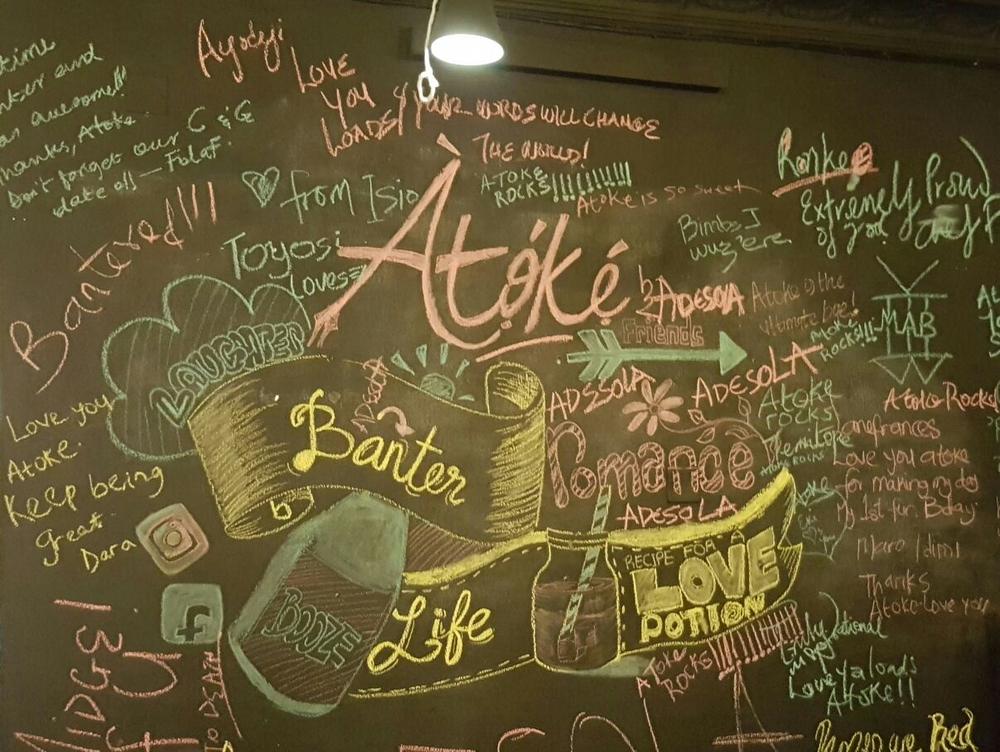 time
and
an awesome!!
Thanks, Atoke
Don't forget our C & G
date oh — FolaF.
Ayodeji
LOVE
YOU
LOADS!
YOUR WORDS WILL CHANGE
THE WORLD!
ATOKE
ROCKS!!!!!!!!!
Atoke is so sweet
from Isio
Toyosi
Loves
Àtọ́ké
Bantered!!!
Bimbs I
wuz 'ere
Ronke
Extremely Proud
of you
by ADESOLA
Atoke is the
ultimate bae!
Atoke
ROCKS!!!
MAB
Friends
LAUGHTER
Banter
ADESOLA
ADESOLA
Romance
ADESOLA
ATOKE
ROCKS
Atoke Rocks
Love you atoke
for making my day
My 1st fur. Bday
Thanks
Atoke love you
Love you
Atoke.
Keep being
great.
Dara
BOOZE
Life
RECIPE FOR A
LOVE
POTION
Atoke
Rocks!!!!!!!!!!!
Love ya loads
Atoke!!
MIDGE!
TO DEATH